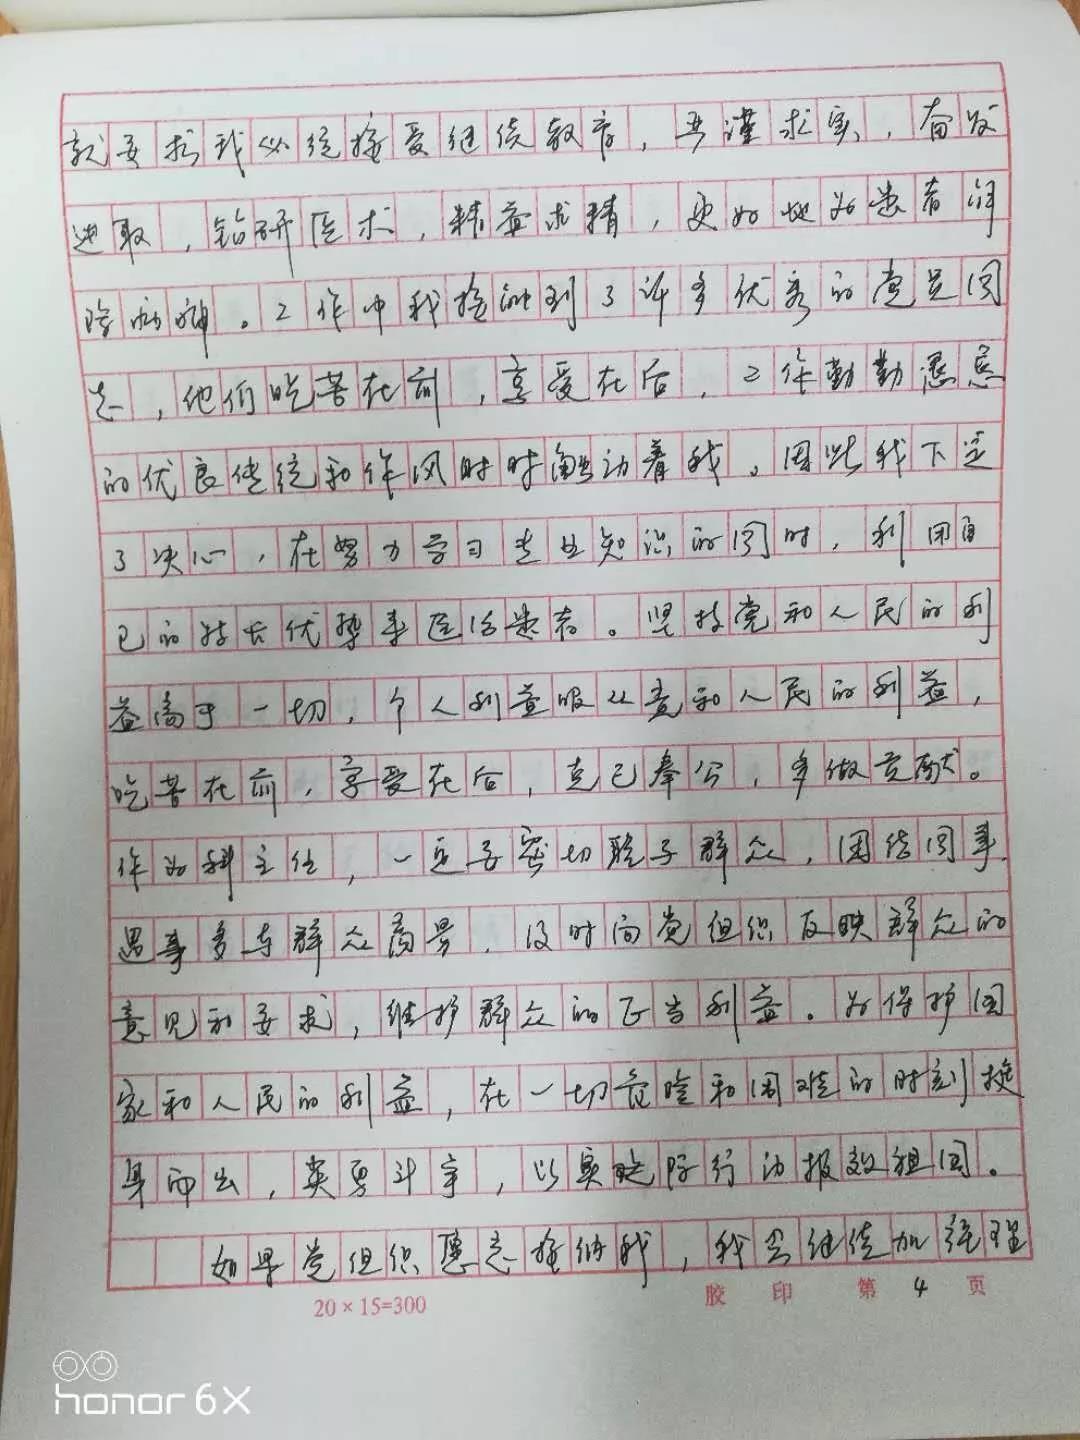 就要求我必须接受继续教育，严谨求实，奋发
进取，钻研医术，精益求精，更好地为患者解
除病痛。工作中我接触到了许多优秀的党员同
志，他们吃苦在前，享受在后，工作勤勤恳恳
的优良传统和作风时时触动着我。因此我下定
了决心，在努力学习专业知识的同时，利用自
己的特长优势来医治患者。坚持党和人民的利
益高于一切，个人利益服从党和人民的利益，
吃苦在前，享受在后，克己奉公，多做贡献。
作为科主任，一定要密切联系群众，团结同事，
遇事多与群众商量，及时向党组织反映群众的
意见和要求，维护群众的正当利益。为保护国
家和人民的利益，在一切危险和困难的时刻挺
身而出，英勇斗争，以实际行动报效祖国。
如果党组织愿意接纳我，我会继续加强理
20×15=300
胶 印 第 4 页
honor 6X